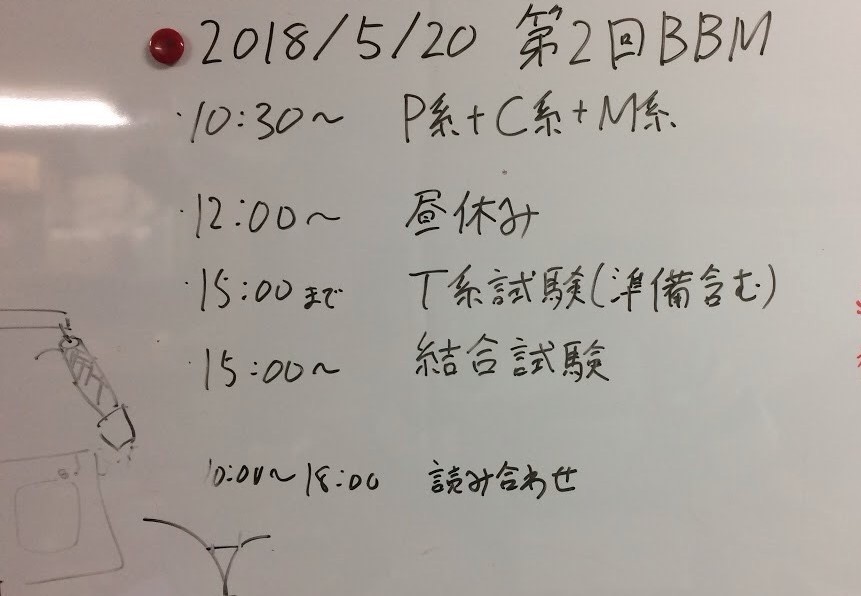 2018/5/20 第2回BBM
・10:30～ P系+C系+M系
・12:00～ 昼休み
・15:00まで T系試験(準備含む)
・15:00～ 結合試験
10:00～18:00 読み合わせ